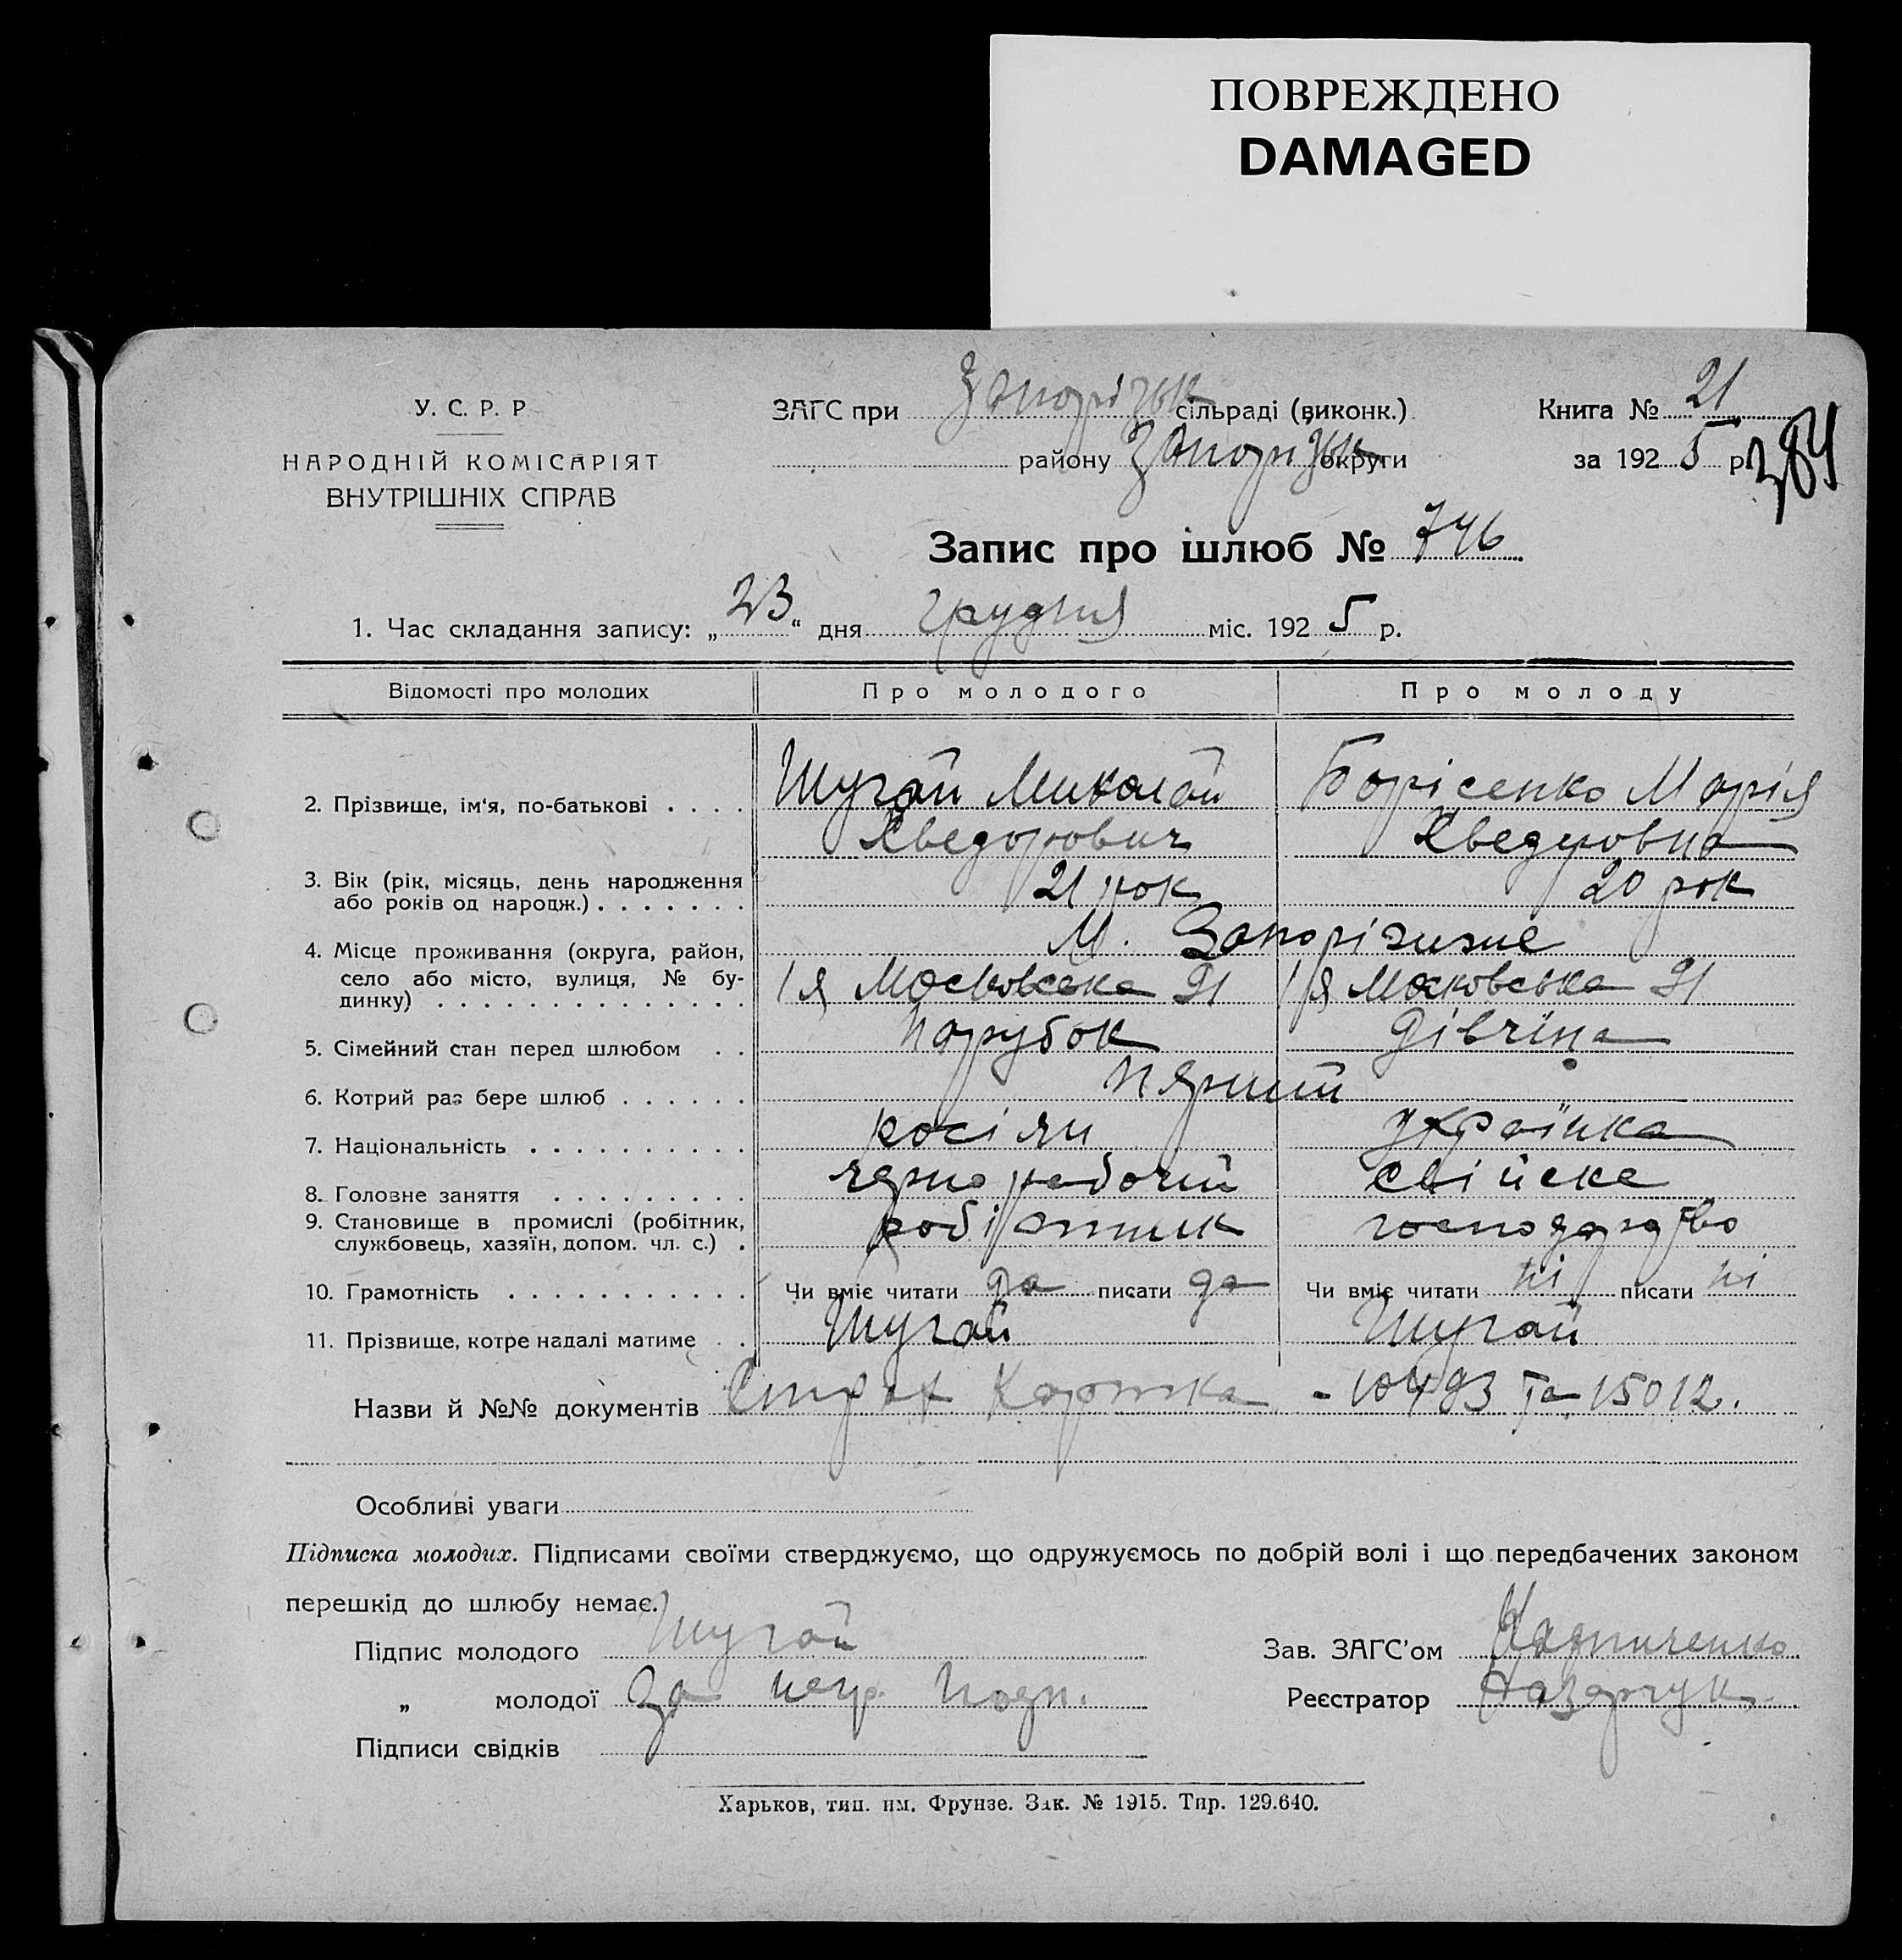 ПОВРЕЖДЕНО
DAMAGED
У. С. Р. Р
НАРОДНІЙ КОМІСАРІЯТ
ВНУТРІШНІХ СПРАВ
ЗАГС при Запорізьк сільраді (виконк.)
району Запорізьк округи
Книга № 21
за 1925 р.
384
Запис про шлюб № 746
1. Час складання запису: „23“ дня грудня міс. 1925 р.
Відомості про молодих Про молодого Про молоду
2. Прізвище, ім‘я, по-батькові . . . . Шугай Миколай Борісенко Марія
Хведорович Хведоровна
3. Вік (рік, місяць, день народження 21 рок 20 рок
або років од народж.) . . . . . . .
4. Місце проживання (округа, район, М. Запоріжже
село або місто, вулиця, № бу- 1я Московська 91 1я Московська 91
динку) . . . . . . . . . . . . . .
5. Сімейний стан перед шлюбом . . парубок дівчіна
6. Котрий раз бере шлюб . . . . . . пярший
7. Національність . . . . . . . . . . росіян українка
8. Головне заняття . . . . . . . . . чернорабочий свійске
9. Становище в промислі (робітник, робітник господарство
службовець, хазяїн, допом. чл. с.) .
10. Грамотність . . . . . . . . . . . Чи вміє читати да писати да Чи вміє читати ні писати ні
11. Прізвище, котре надалі матиме . . Шугай Шугай
Назви й №№ документів Страх Картка - 10493 та 15012.
Особливі уваги
Підписка молодих. Підписами своїми стверджуємо, що одружуємось по добрій волі і що передбачених законом
перешкід до шлюбу немає.
Підпис молодого Шугай Зав. ЗАГС’ом
„ молодої За негр подп. Реєстратор Назарчук
Підписи свідків
Харьков, тип. им. Фрунзе. Зак. № 1915. Тир. 129.640.